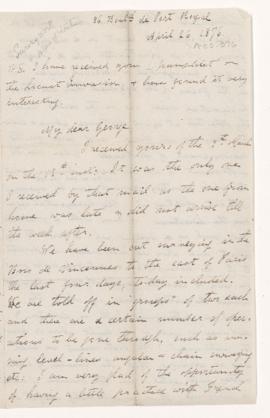 86 Boulvd de Port Royal
April 26, 1876
P.S. I have received your pamphlet on
the Locust Invasion & have found it very
interesting.
My dear George
I received yours of the 9th March
on the 18th inst: It was the only one
I received by that mail as the one from
home was late & did not arrive till
the week after.
We have been out surveying in the
Bois de Vincennes to the east of Paris
the last four days, to-day included.
We are told off in "groups" of two each
and there are a certain number of oper-
ations to be gone through, such as run-
ning level-lines angular & chain surveying
etc. I am very glad of the opportunity
of having a little practice with French